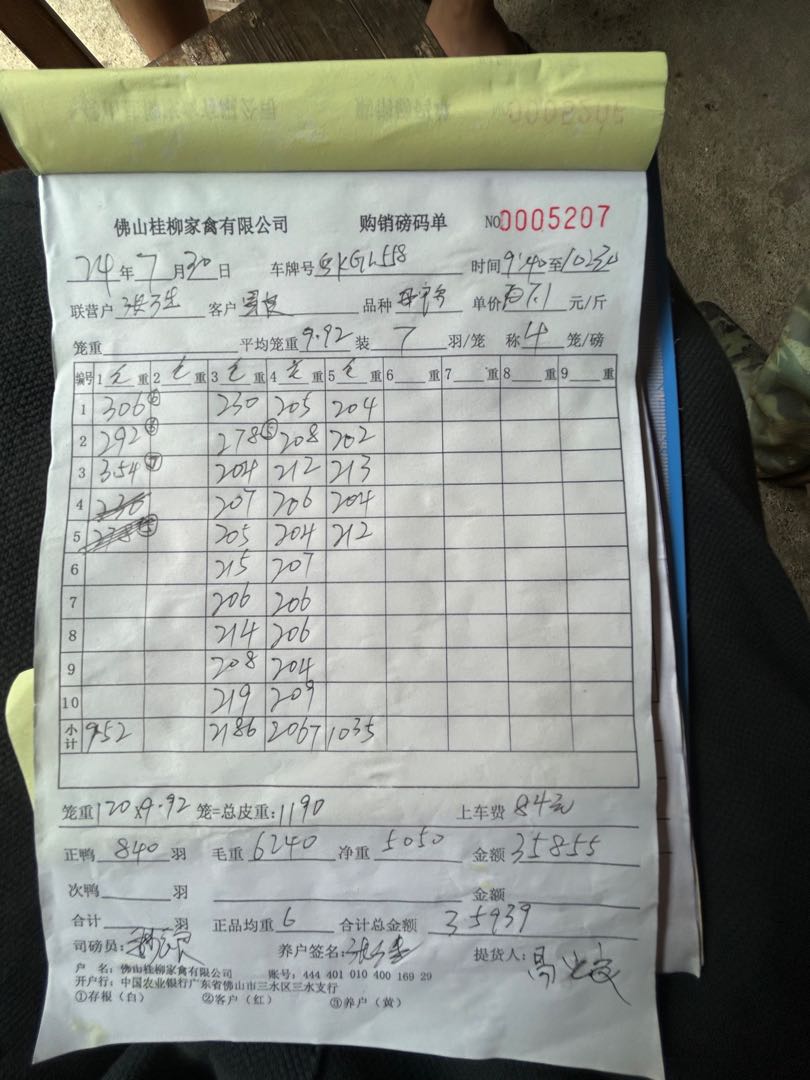 佛山桂柳家禽有限公司 购销磅码单 NO 0005207
24年7月30日 车牌号 KGL558 时间9:40至10:30
联营户 客户 品种 单价 7.1 元/斤
笼重 平均笼重9.92 装 7 羽/笼 称 4 笼/磅
编号 1毛重 2毛重 3毛重 4毛重 5毛重 6重 7重 8重 9重
1 306⑥ 230 205 204
2 292⑥ 278⑤ 208 202
3 354⑦ 204 212 213
4 207 206 204
5 205 204 212
6 215 207
7 206 206
8 214 206
9 208 204
10 219 209
小计 952 2186 2067 1035
笼重120×9.92 笼=总皮重:1190 上车费 84元
正鸭 840 羽 毛重 6240 净重 5050 金额 35855
次鸭 羽 金额
合计 羽 正品均重 6 合计总金额 35939
司磅员: 养户签名: 提货人:
户 名:佛山桂柳家禽有限公司 账号:444 401 010 400 169 29
开户行:中国农业银行广东省佛山市三水区三水支行
①存根(白) ②客户(红) ③养户(黄)